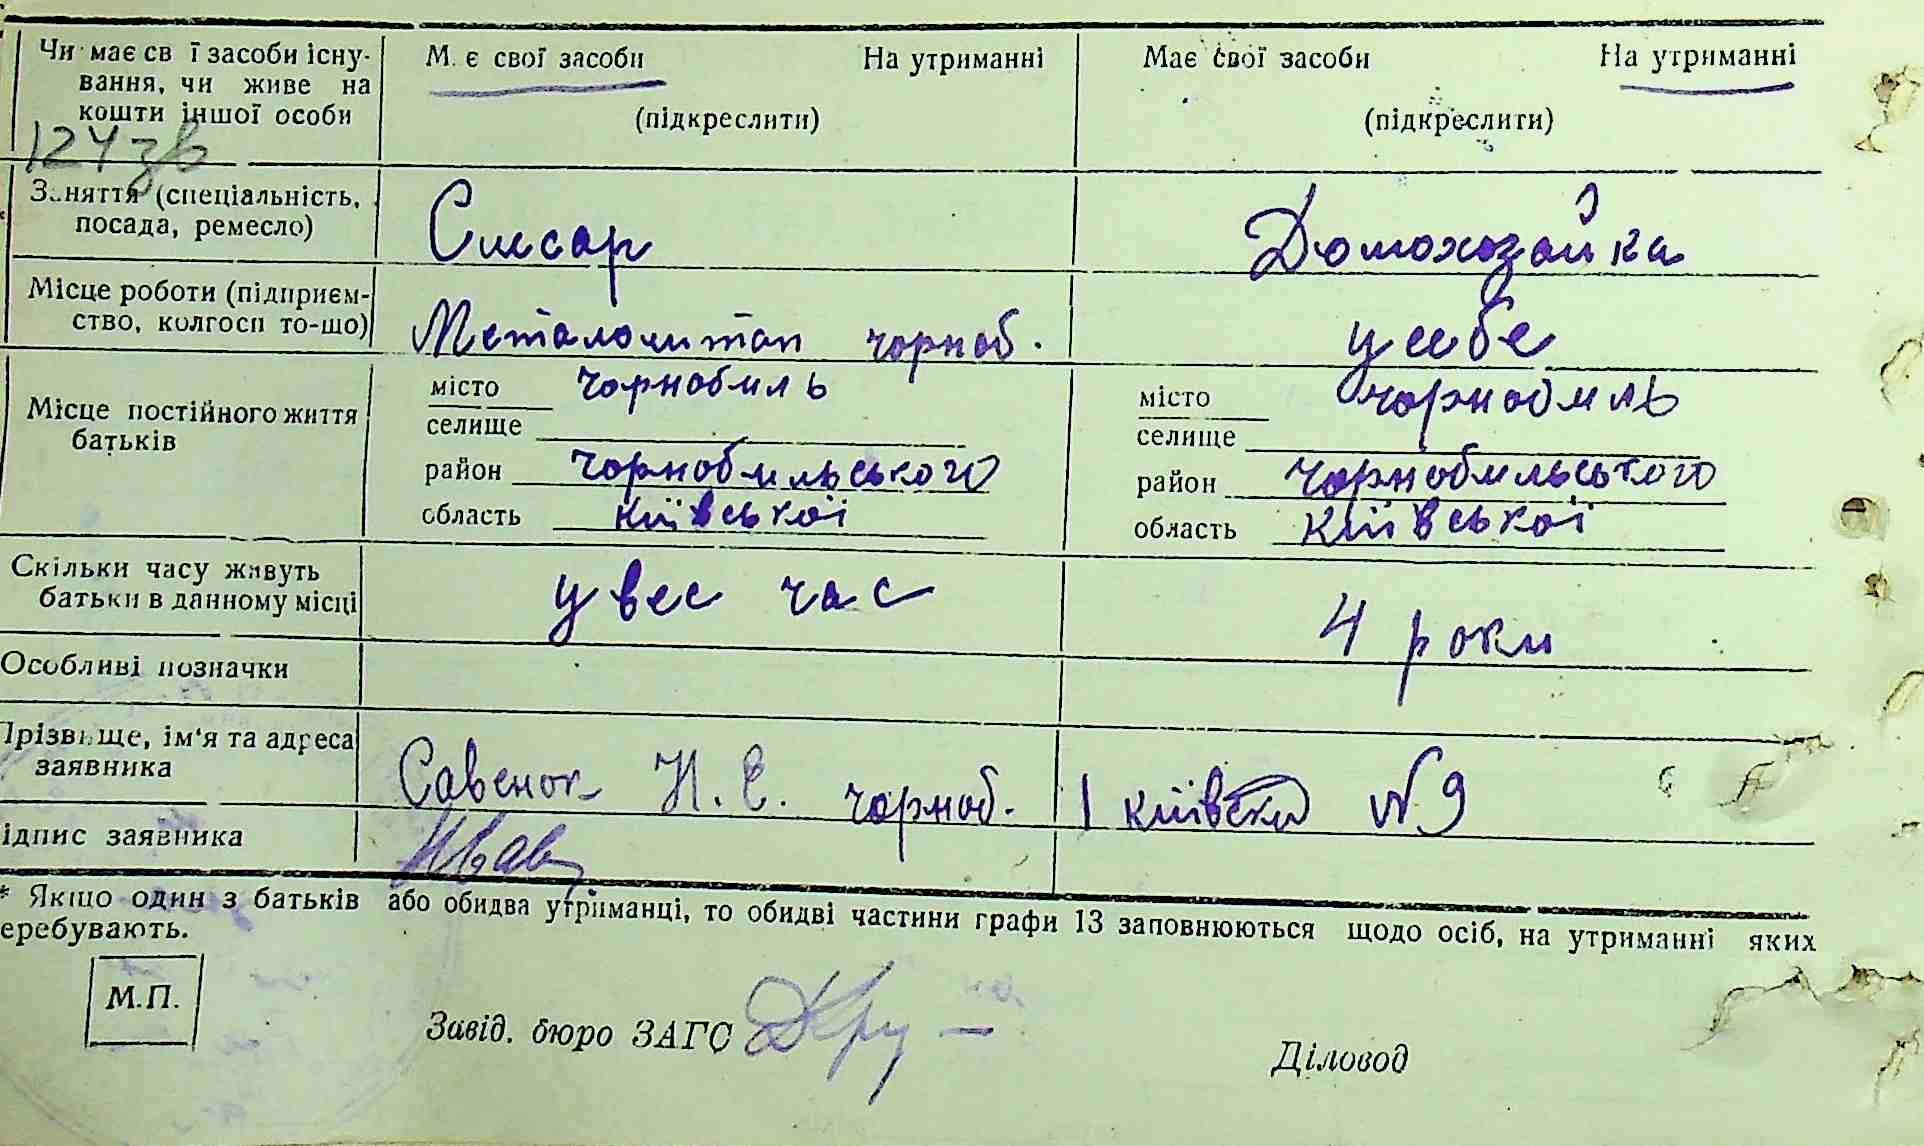 Чи має св ї засоби існу-
вання, чи живе на
кошти іншої особи
М. є свої засоби На утриманні
(підкреслити)
Має свої засоби На утриманні
(підкреслити)
124 зв
З..няття (спеціальність,
посада, ремесло)
Слюсар
Домохозайка
Місце роботи (підприєм-
ство, колгосп то-що)
Металоштап чорноб.
у себе
Місце постійного життя
батьків
місто чорнобиль
селище
район чорнобильського
область київської
місто чорнобиль
селище
район чорнобильського
область київської
Скільки часу живуть
батьки в данному місці
у вес час
4 роки
Особливі позначки
Прізвище, ім'я та адреса
заявника
Савенок Н. Є. чорноб. 1 київська №9
ідпис заявника
* Якщо один з батьків або обидва утриманці, то обидві частини графи 13 заповнюються щодо осіб, на утриманні яких
еребувають.
М.П.
Завід. бюро ЗАГС
Діловод